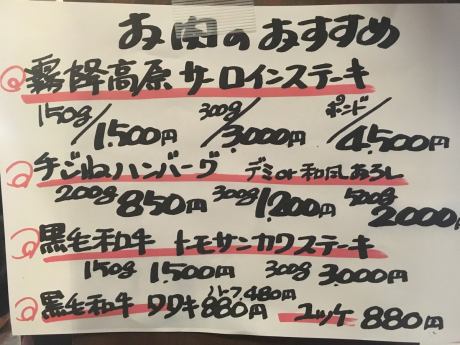 お肉のおすすめ
霧降高原 サーロインステーキ
150g/1,500円 300g/3,000円 ポンド/4,500円
手ごねハンバーグ デミor和風おろし
200g 850円 300g 1,200円 500g 2,000円
黒毛和牛 トモサンカクステーキ
150g 1,500円 300g 3,000円
黒毛和牛 タタキ 880円 ハーフ 480円 ユッケ 880円